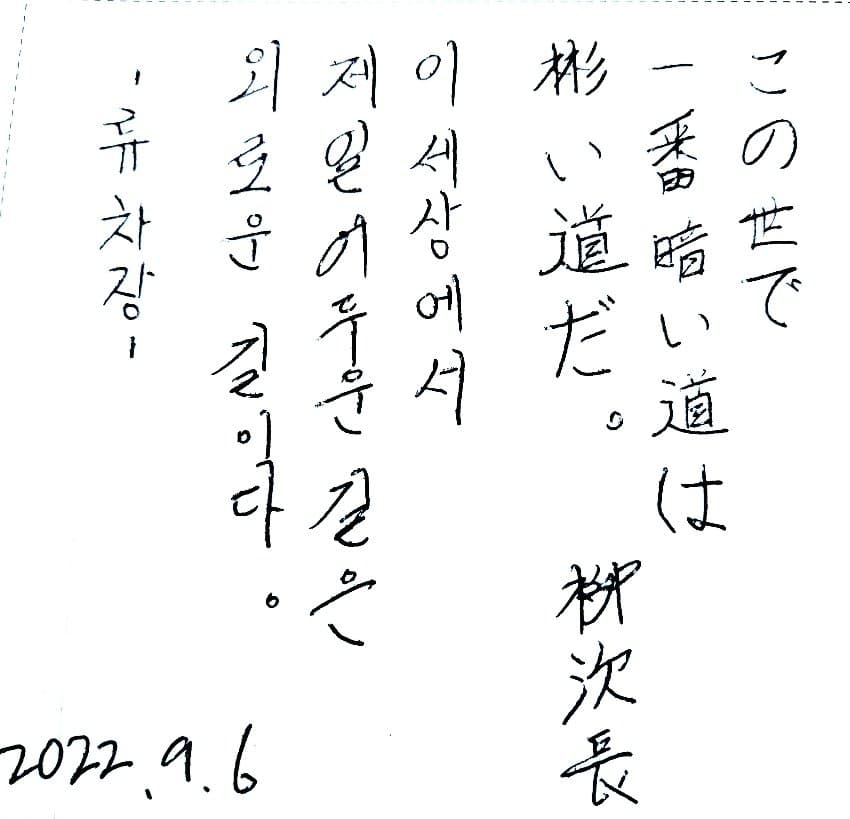 この世で
一番暗い道は
彬い道だ。
柳次長
이 세상에서
제일 어두운 길은
외로운 길이다.
-류차장-
2022.9.6